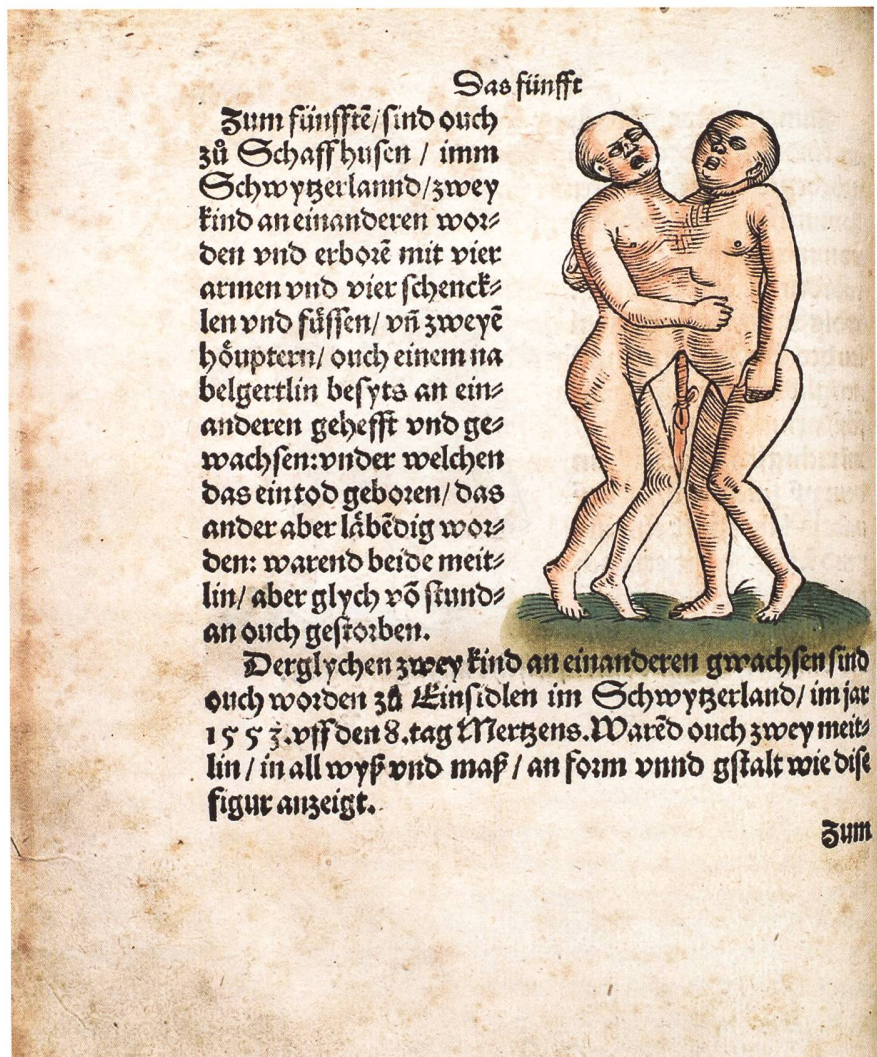 Das fünfft
Zum fünfftẽ/sind ouch
zů Schaffhusen / imm
Schwytzerlannd/zwey
kind an einanderen wor⸗
den vnd erborẽ mit vier
armen vnd vier schenck⸗
len vnd fuͤssen/ vñ zweyẽ
hoͤuptern/ ouch einem na
belgertlin besyts an ein⸗
anderen gehefft vnd ge⸗
wachsen:vnder welchen
das ein tod geboren/ das
ander aber laͤbẽdig wor⸗
den: warend beide meit⸗
lin/ aber glych võ stund⸗
an ouch gestorben.
Derglychen zwey kind an einanderen gwachsen sind
ouch worden zů Einsidlen im Schwytzerland/ im jar
1553.vff den 8.tag Mertzens.Warẽd ouch zwey meit⸗
lin / in all wyß vnd maß / an form vnnd gstalt wie dise
figur anzeigt.
Zum